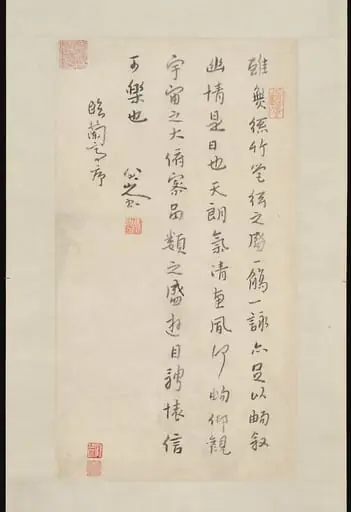 雖無絲竹管絃之盛一觴一詠亦足以暢叙
幽情是日也天朗氣清惠風和暢仰觀
宇宙之大俯察品類之盛遊目騁懷信
可樂也
八大山人
臨蘭亭序